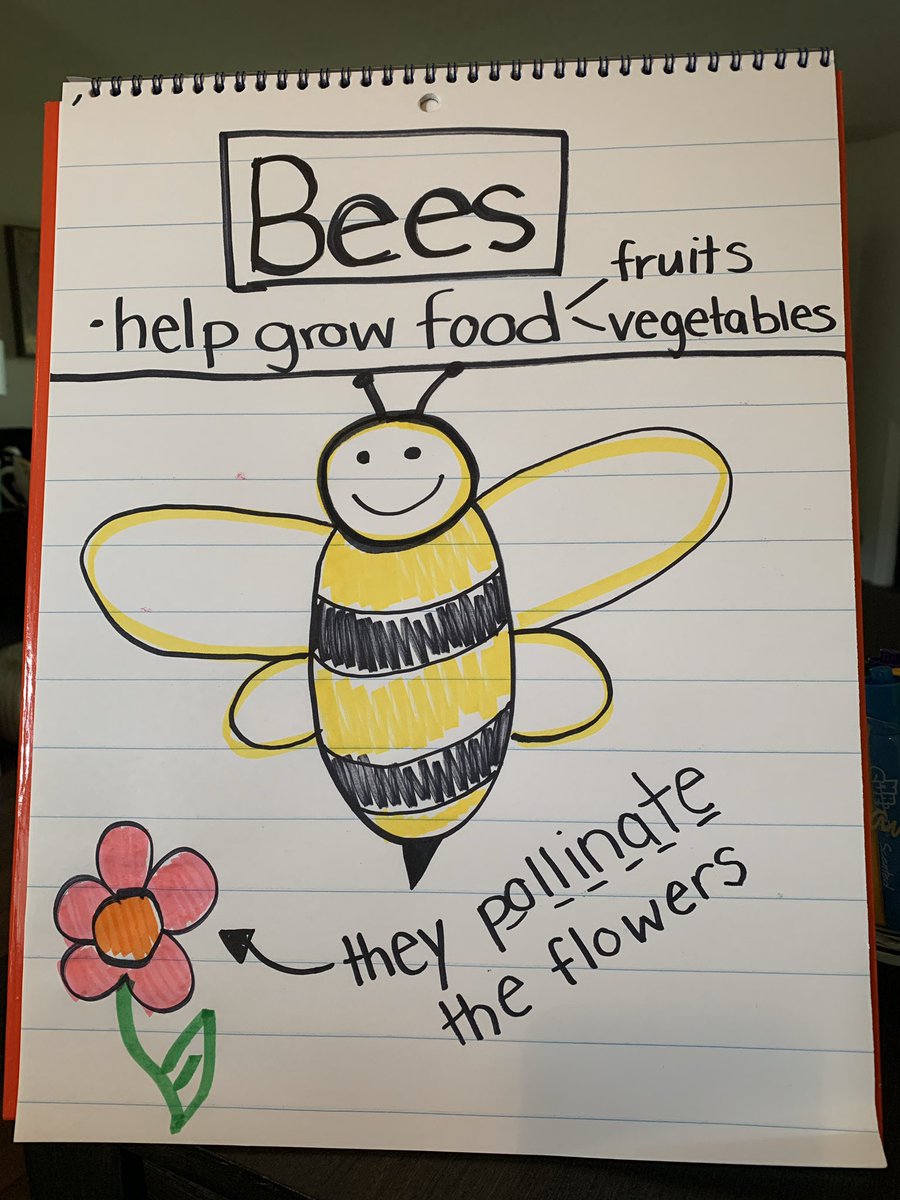 Bees
fruits
• help grow food
vegetables
they pollinate
the flowers
Scented